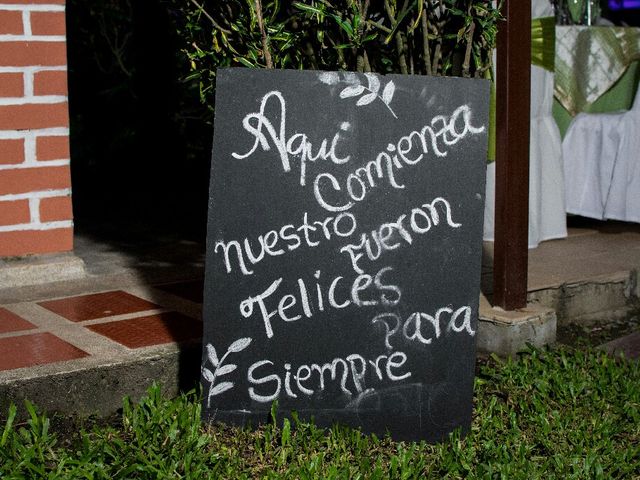 Aqui
Comienza
nuestro
Fueron
Felices
Para
Siempre